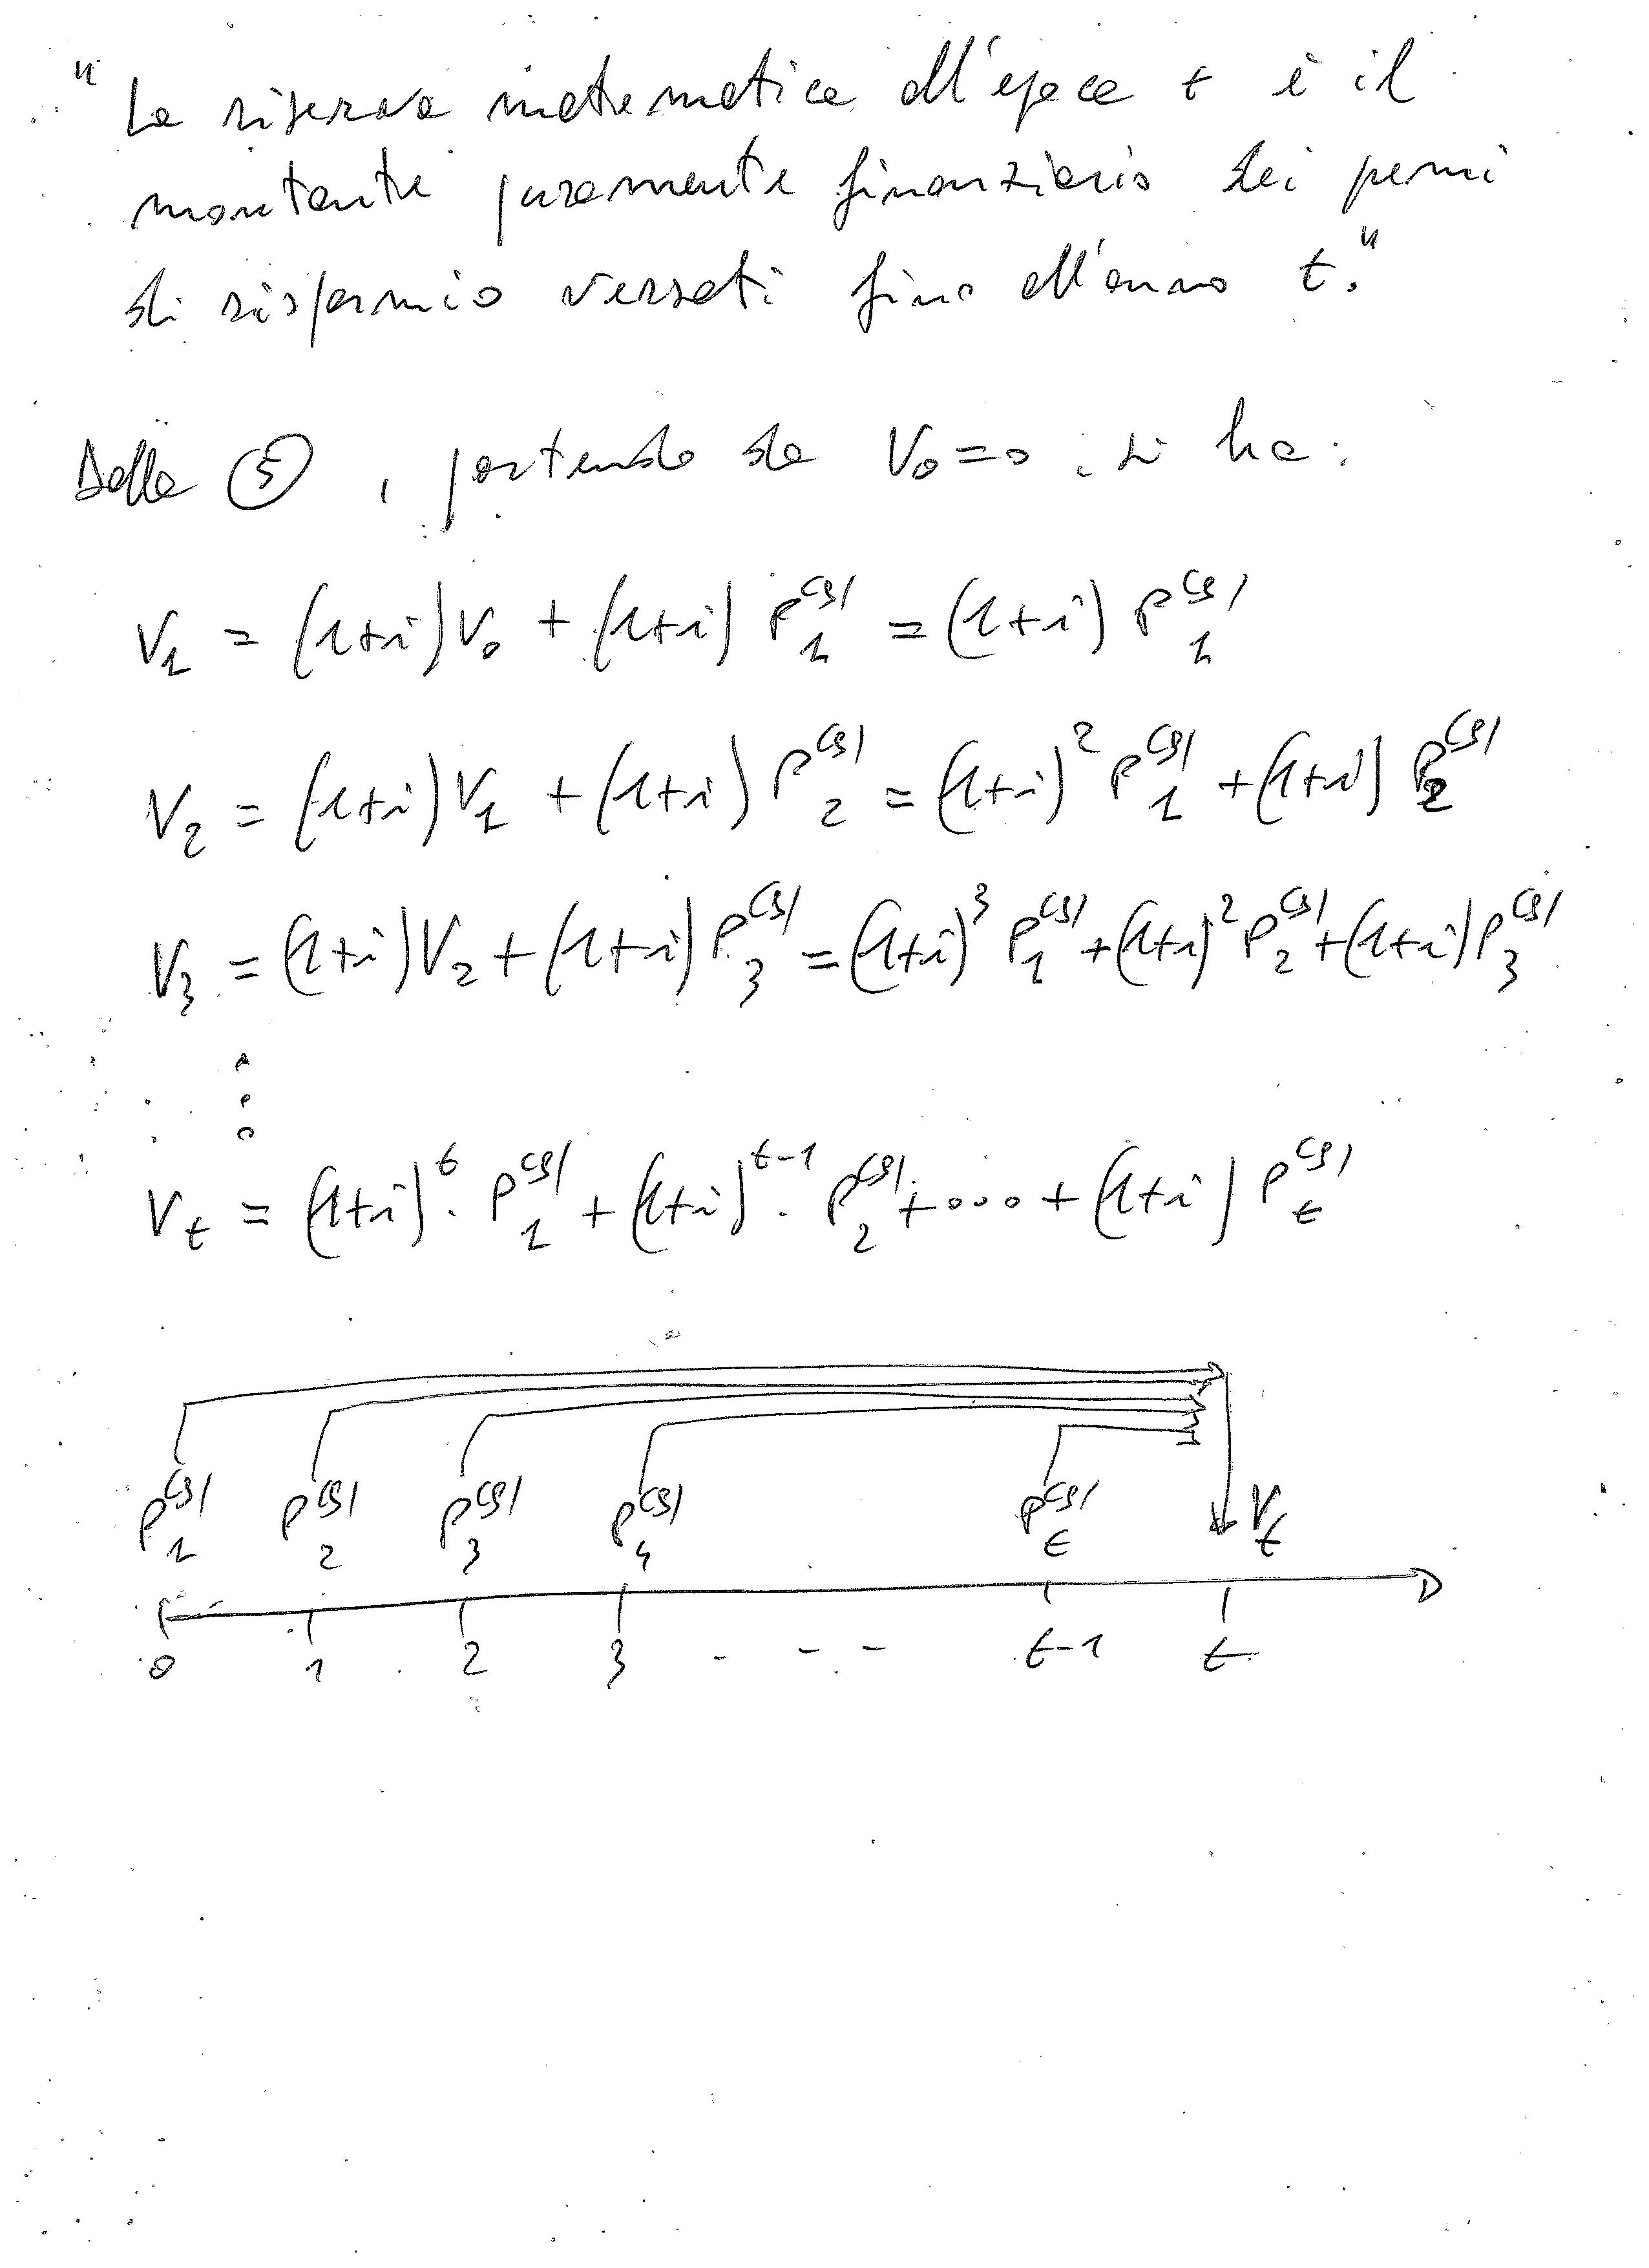 "La riserva matematica all'epoca t è il
montante puramente finanziario dei premi
di risparmio versati fino all'anno t."
Dalla ⑤, partendo da V₀=0, si ha:
V₁ = (1+i)V₀ + (1+i) P₁^(S) = (1+i) P₁^(S)
V₂ = (1+i)V₁ + (1+i) P₂^(S) = (1+i)² P₁^(S) + (1+i) P₂^(S)
V₃ = (1+i)V₂ + (1+i) P₃^(S) = (1+i)³ P₁^(S) + (1+i)² P₂^(S) + (1+i) P₃^(S)
⋮
V_t = (1+i)^t · P₁^(S) + (1+i)^(t-1) · P₂^(S) + .... + (1+i) P_t^(S)
P₁^(S) P₂^(S) P₃^(S) P₄^(S) P_t^(S) V_t
0 1 2 3 - - - - t-1 t